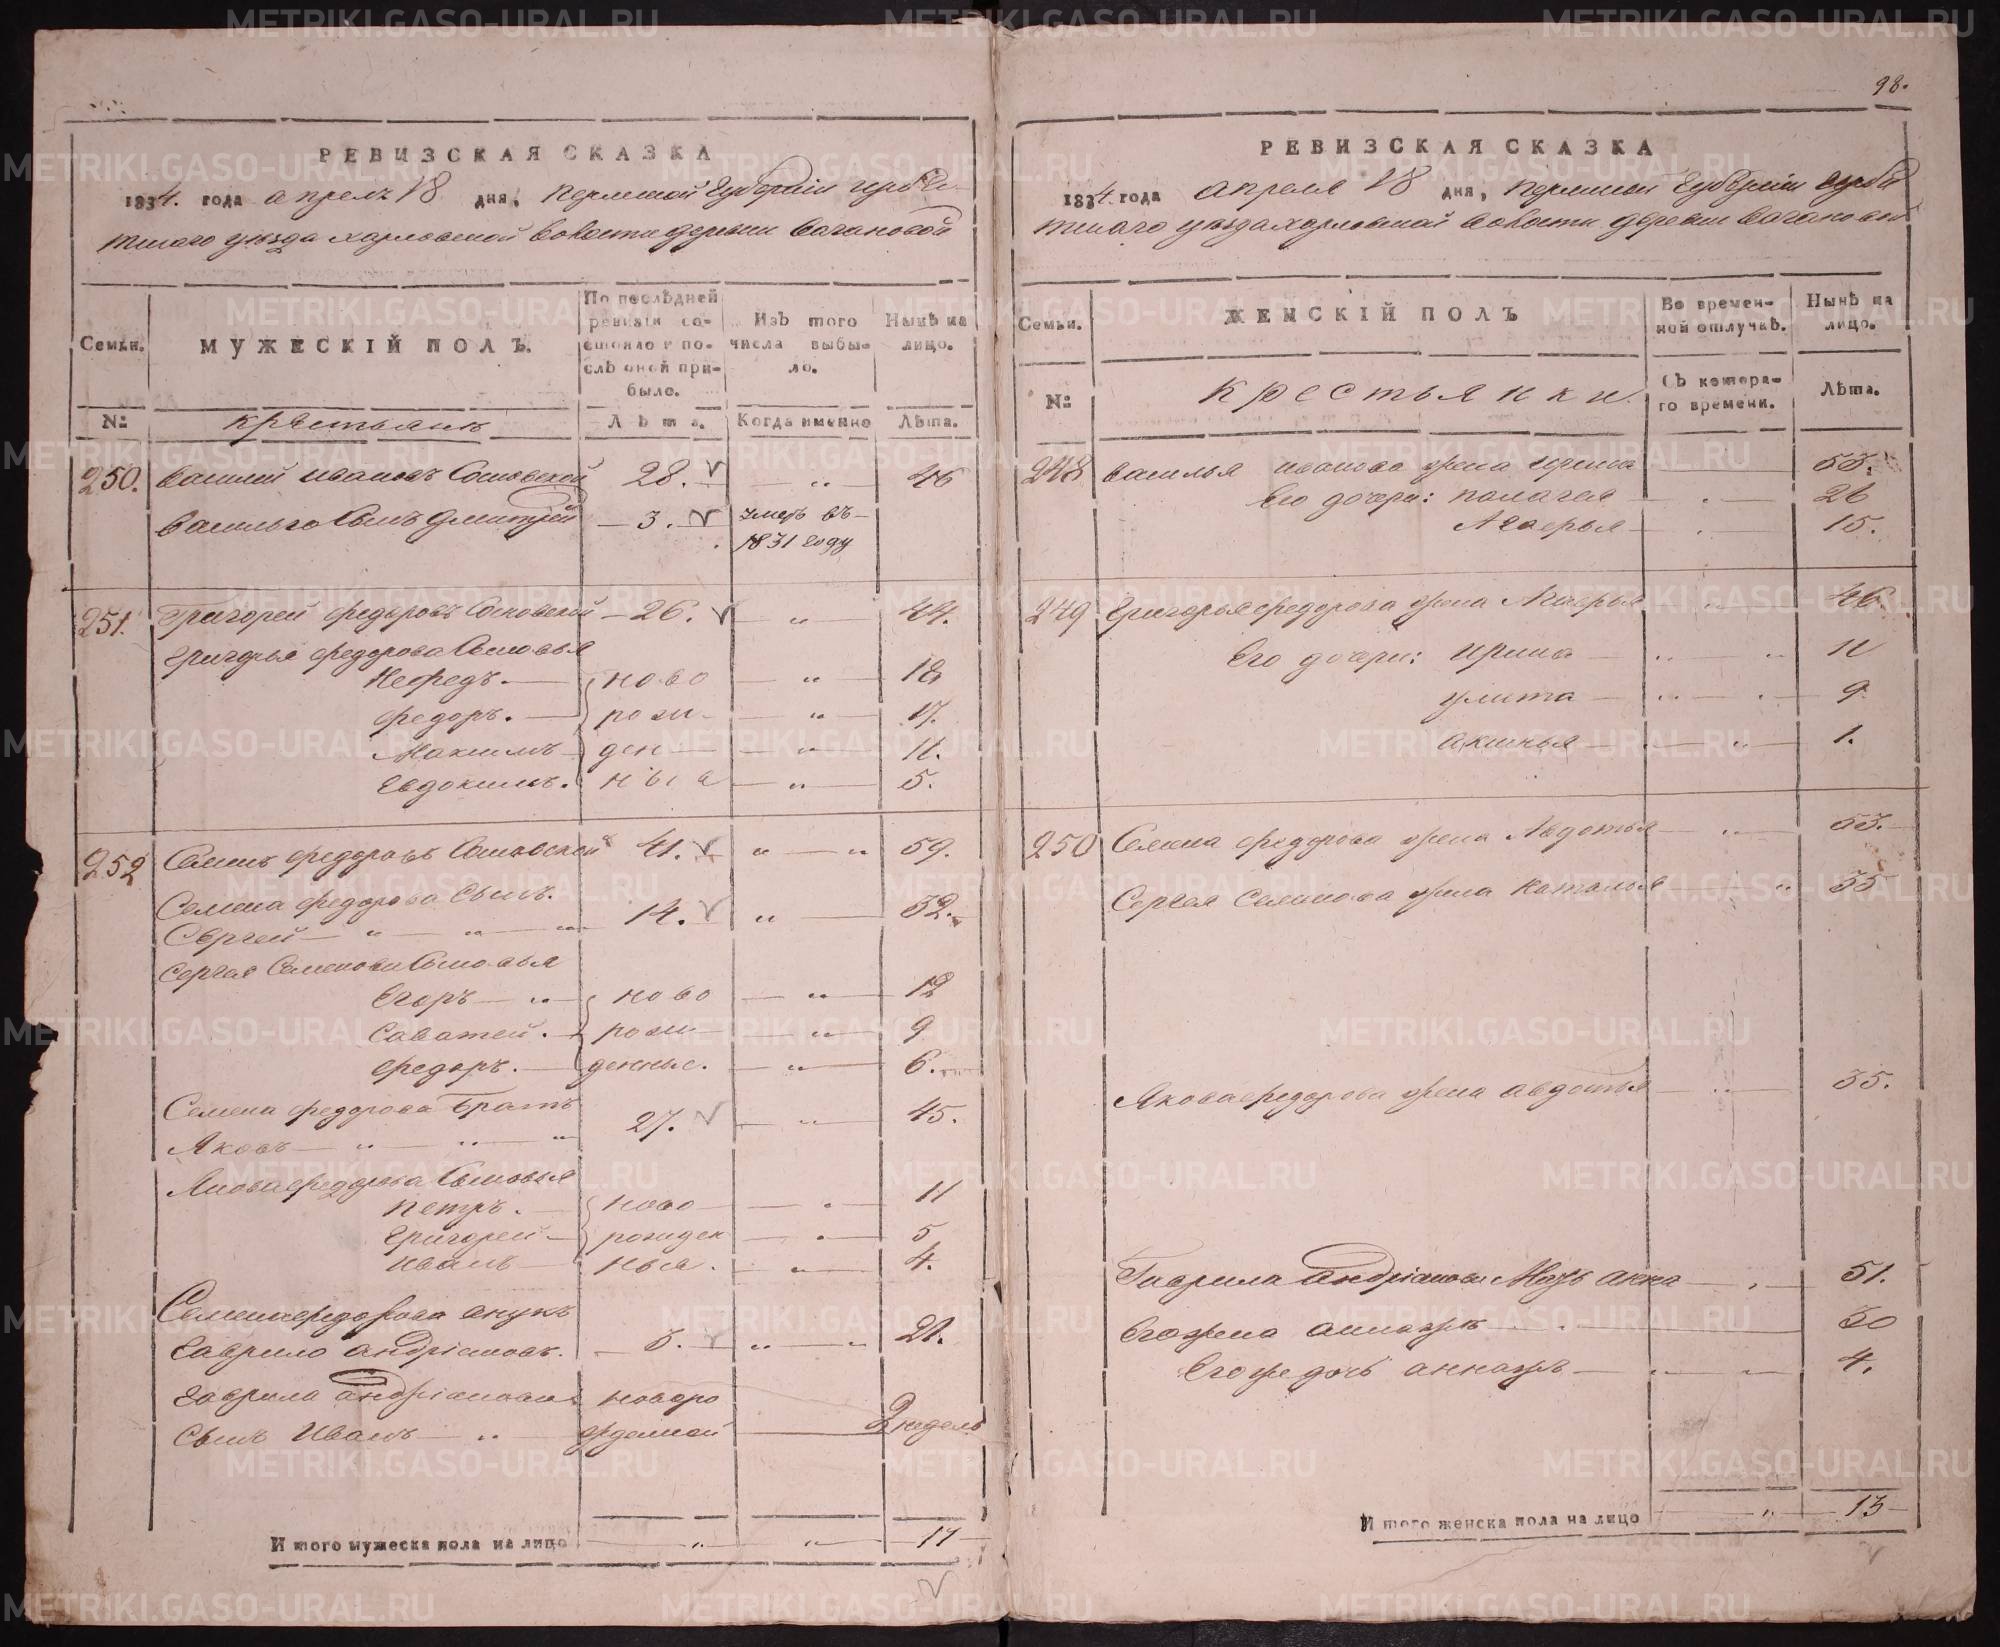 98.
РЕВИЗСКАЯ СКАЗКА
1834. года апреля 18 дня, Пермской Губернiи Ирбит
тскаго уезда харловской волости деревни Вагановой
Семьи.
МУЖЕСКIЙ ПОЛЪ.
По послѣдней ревизiи состояло и послѣ оной прибыло.
Изъ того числа выбыло.
Нынѣ на лицо.
№
крестьяне
Лѣта.
Когда именно
Лѣта.
250. Василий Ивановъ Сосновской 28. „ 46
Васильго Сынъ Дмитрей 3. умеръ въ
1831 году
251. Григорей федоровъ Сосновской 26. „ 44.
Григорья федорова Сыновья
Нефедъ. ново „ 18
федоръ. рож „ 17.
Максимъ ден „ 11.
Евдокимъ. ныа „ 5.
252 Семенъ федоровъ Сосновской 41. „ „ 59.
Семена федорова Сынъ.
Сергей „ „ „ 14. „ 32.
Сергея Семенова Сыновья
Егоръ „ ново „ 12
Саватей. рож „ 9
федоръ. денные. „ 6.
Семена федорова Братъ
Яковъ „ „ „ 27. „ 45.
Якова федорова Сыновья
Петръ. ново 11
Григорей рожден 5
Иванъ ныя. „ 4.
Семена федорова внукъ
Гаврило Андрiановъ. 3. „ „ 21.
Гаврила Андрiанова новоро
Сынъ Иванъ „ жденной 2 недель
Итого мужеска пола на лицо „ „ 17
РЕВИЗСКАЯ СКАЗКА
1834 года апреля 18 дня, Пермской Губернiи Ирбит
тскаго уезда харловской волости деревни Вагановой
Семьи.
ЖЕНСКIЙ ПОЛЪ
Во временной отлучкѣ.
Нынѣ на лицо.
№
крестьянки
Съ котораго времени.
Лѣта.
248 Василья Иванова жена Ирина 53.
Его дочери: Палагея 26
Агаерья 15.
249 Григорья федорова жена Агаерья „ 46.
Его дочери: Ирина „ „ 11
улита „ 9
Аксинья „ 1.
250 Семена федорова жена Авдотья „ 53.
Сергея Семенова жена Наталья „ 35
Якова федорова жена Авдотья „ 35.
Гаврила Андрiанова Мать Анна 51.
Его жена 20
Его же дочь 4.
Итого женска пола на лицо „ 13
METRIKI.GASO-URAL.RU